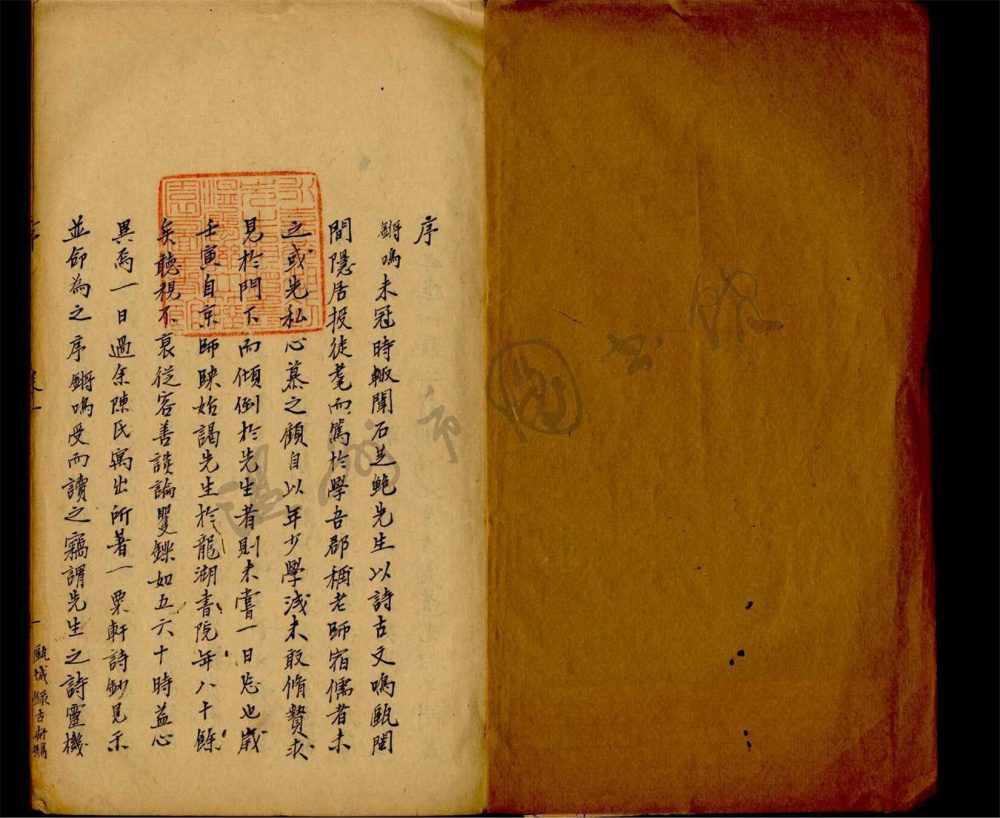 序
鏘鳴未冠時輙聞石芝鮑先生以詩古文鳴甌閩
間隱居授徒耄而篤於學吾郡稱老師宿儒者未
之或先私心慕之顧自以年少學淺未敢脩贄求
見於門下而傾倒於先生者則未嘗一日忘也歲
壬寅自京師歸始謁先生於龍湖書院年八十餘
矣聽視不衰從容善談論矍鑠如五六十時益心
異焉一日過余陳氏寓出所著一粟軒詩鈔見示
並卹為之序鏘鳴受而讀之竊謂先生之詩靈機
序
一
甌城
古
温州市圖書館